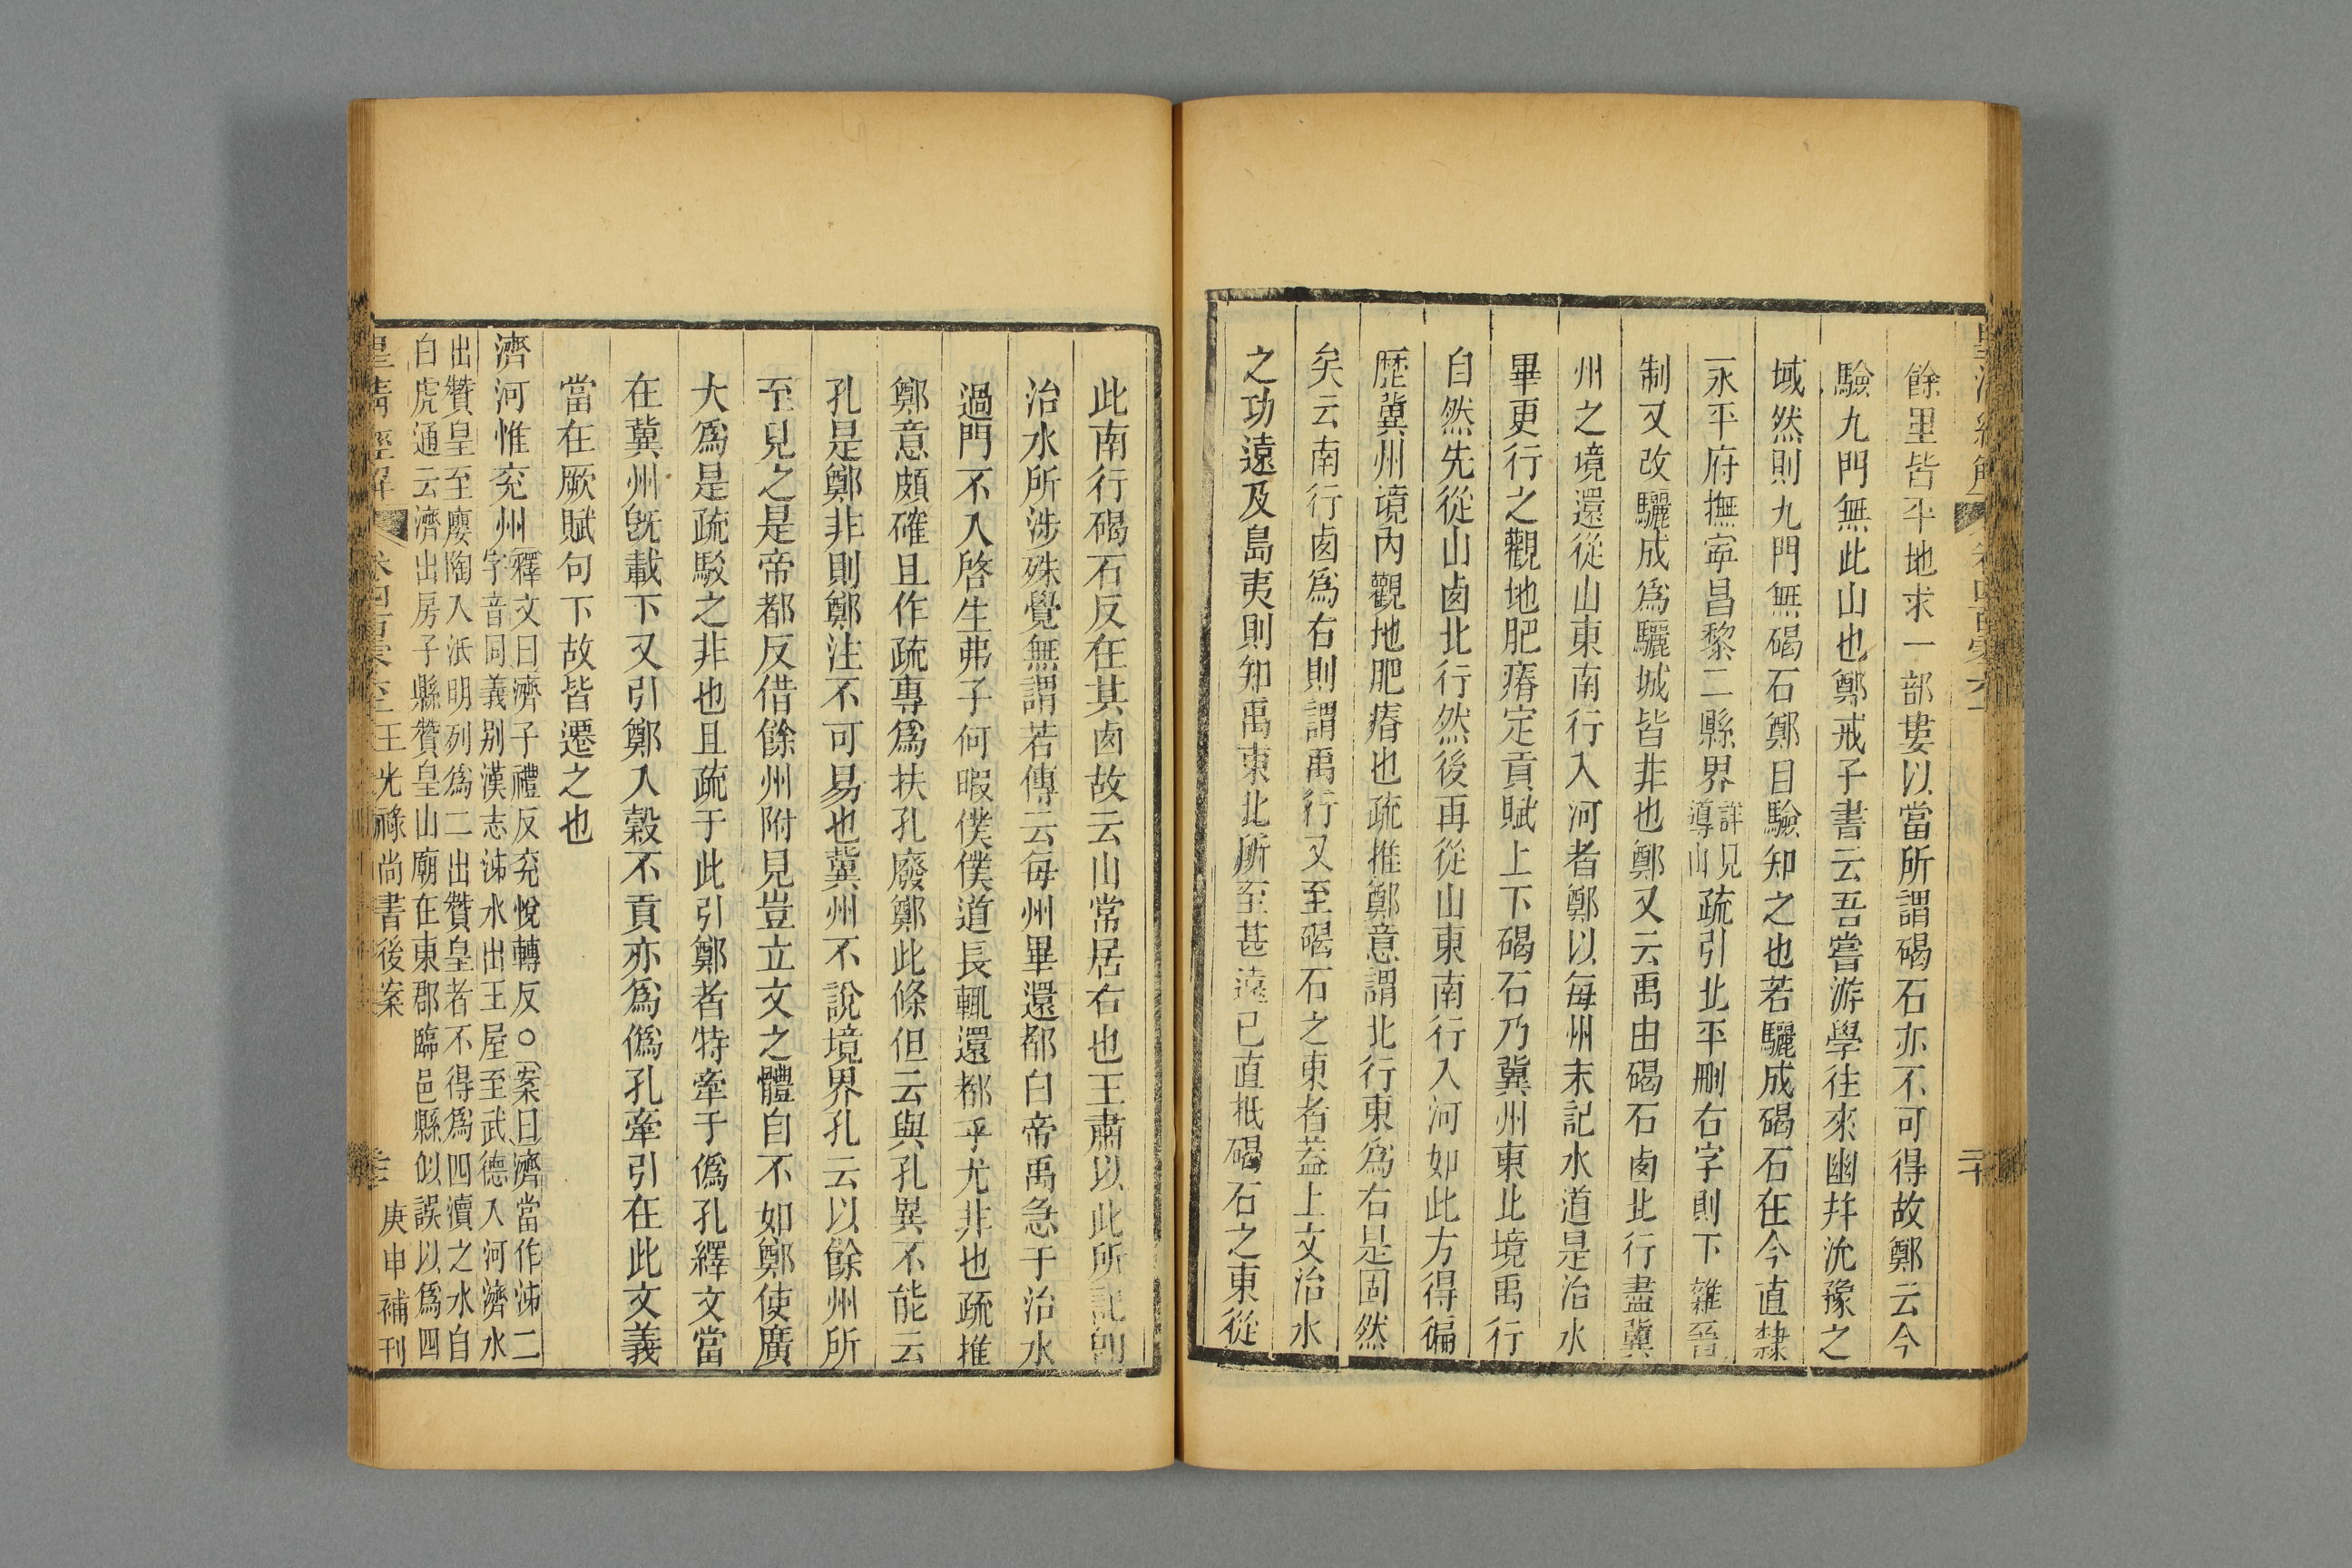 餘里皆平地求一部婁以當所謂碣石亦不可得故鄭云今
驗九門無此山也鄭戒子書云吾嘗游學往來幽并沇豫之
域然則九門無碣石鄭目驗知之也若驪成碣石在今直隸
永平府撫寧昌黎二縣界
詳見
導山
疏引北平刪右字則下雜晉
制又改驪成爲驪城皆非也鄭又云禹由碣石鹵北行盡冀
州之境還從山東南行入河者鄭以每州末記水道是治水
畢更行之觀地肥瘠定貢賦上下碣石乃冀州東北境禹行
自然先從山鹵北行然後再從山東南行入河如此方得徧
歷冀州境內觀地肥瘠也疏推鄭意謂北行東爲右是固然
矣云南行鹵爲右則謂禹行又至碣石之東者蓋上文治水
之功遠及島夷則知禹東北所至甚遠已直抵碣石之東從
此南行碣石反在其鹵故云山常居右也王肅以此所記
治水所涉殊覺無謂若傳云每州畢還都白帝禹急于治水
過門不入啓生弗子何暇僕僕道長輒還都乎尤非也疏推
鄭意頗確且作疏專爲扶孔廢鄭此條但云與孔異不能云
孔是鄭非則鄭注不可易也冀州不說境界孔云以餘州所
至見之是帝都反借餘州附見豈立文之體自不如鄭使廣
大爲是疏駮之非也且疏于此引鄭者特牽于僞孔繹文當
在冀州旣載下又引鄭入穀不貢亦爲僞孔牽引在此文義
當在厥賦句下故皆遷之也
濟河惟兖州
釋文曰濟子禮反兖悅轉反○案曰濟當作泲二
字音同義别漢志泲水出王屋至武德入河濟水
出贊皇至廮陶入泜明列爲二出贊皇者不得爲四瀆之水自
白虎通云濟出房子縣贊皇山廟在東郡臨邑縣似誤以爲四
皇淸經解 卷四百零六 王光祿尚書後案 庚申補刊